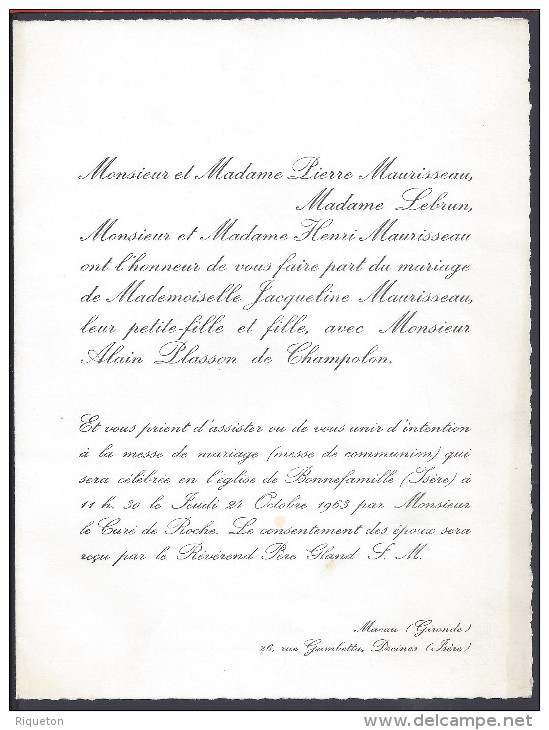 Monsieur et Madame Pierre Maurisseau,
Madame Lebrun,
Monsieur et Madame Henri Maurisseau
ont l'honneur de vous faire part du mariage
de Mademoiselle Jacqueline Maurisseau,
leur petite-fille et fille, avec Monsieur
Alain Plasson de Champolon.
Et vous prient d'assister ou de vous unir d'intention
à la messe de mariage (messe de communion) qui
sera célébrée en l'église de Bonnefamille (Isère) à
11 h. 30 le Jeudi 24 Octobre 1963 par Monsieur
le Curé de Roche. Le consentement des époux sera
reçu par le Révérend Père Gland S. M.
Macau (Gironde)
26, rue Gambetta, Decines (Isère)
Riqueton
delcampe.net